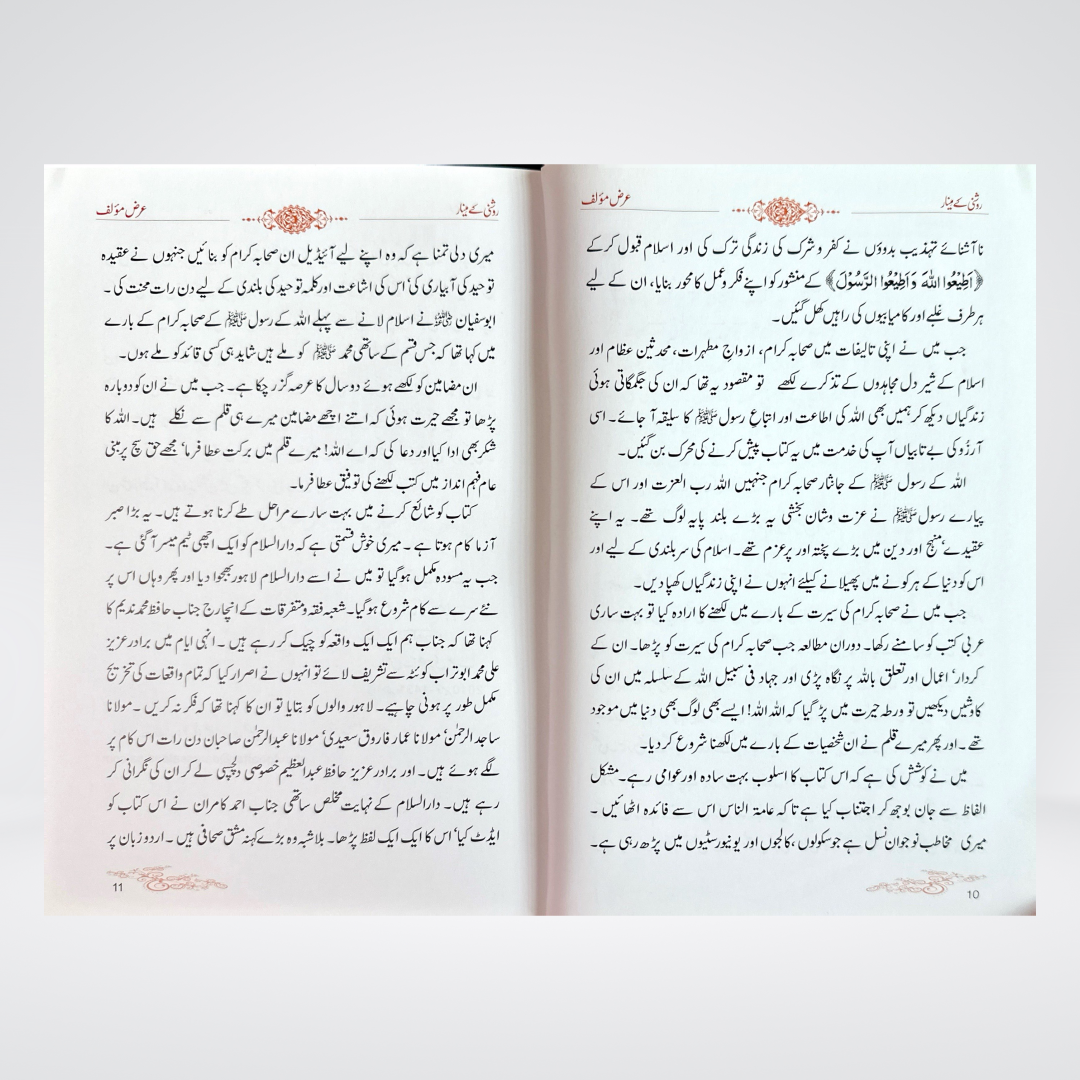 روشنی کے مینار
عرض مؤلف
ناآشنائے تہذیب بدوؤں نے کفر و شرک کی زندگی ترک کی اور اسلام قبول کرکے
﴿اَطِیْعُوا اللّٰہَ وَاَطِیْعُوا الرَّسُوْلَ﴾ کے منشور کو اپنے فکر و عمل کا محور بنایا، ان کے لیے
ہر طرف غلبے اور کامیابیوں کی راہیں کھل گئیں۔
جب میں نے اپنی تالیفات میں صحابہ کرام، ازواجِ مطہرات، محدثین عظام اور
اسلام کے شیر دل مجاہدوں کے تذکرے لکھے تو مقصود یہ تھا کہ ان کی جگمگاتی ہوئی
زندگیاں دیکھ کر ہمیں بھی اللہ کی اطاعت اور اتباعِ رسول ﷺ کا سلیقہ آ جائے۔ اسی
آرزُو کی بے تابیاں آپ کی خدمت میں یہ کتاب پیش کرنے کی محرک بن گئیں۔
اللہ کے رسول ﷺ کے جانثار صحابہ کرام جنہیں اللہ رب العزت اور اس کے
پیارے رسول ﷺ نے عزت و شان بخشی یہ بڑے بلند پایہ لوگ تھے۔ یہ اپنے
عقیدے‘ منہج اور دین میں بڑے پختہ اور پرعزم تھے۔ اسلام کی سربلندی کے لیے اور
اس کو دنیا کے ہر کونے میں پھیلانے کیلئے انہوں نے اپنی زندگیاں کھپا دیں۔
جب میں نے صحابہ کرام کی سیرت کے بارے میں لکھنے کا ارادہ کیا تو بہت ساری
عربی کتب کو سامنے رکھا۔ دوران مطالعہ جب صحابہ کرام کی سیرت کو پڑھا۔ ان کے
کردار‘ اعمال اور تعلق باللہ پر نگاہ پڑی اور جہاد فی سبیل اللہ کے سلسلہ میں ان کی
کاوشیں دیکھیں تو ورطہ حیرت میں پڑ گیا کہ اللہ اللہ! ایسے بھی لوگ بھی دنیا میں موجود
تھے۔ اور پھر میرے قلم نے ان شخصیات کے بارے میں لکھنا شروع کر دیا۔
میں نے کوشش کی ہے کہ اس کتاب کا اسلوب بہت سادہ اور عوامی رہے۔ مشکل
الفاظ سے جان بوجھ کر اجتناب کیا ہے تاکہ عامۃ الناس اس سے فائدہ اٹھائیں۔
میری مخاطب نوجوان نسل ہے جو سکولوں، کالجوں اور یونیورسٹیوں میں پڑھ رہی ہے۔
10
روشنی کے مینار
عرض مؤلف
میری دلی تمنا ہے کہ وہ اپنے لیے آئیڈیل ان صحابہ کرام کو بنائیں جنہوں نے عقیدہ
توحید کی آبیاری کی‘ اس کی اشاعت اور کلمہ توحید کی بلندی کے لیے دن رات محنت کی۔
ابوسفیان رضی اللہ عنہ نے اسلام لانے سے پہلے اللہ کے رسول ﷺ کے صحابہ کرام کے بارے
میں کہا تھا کہ جس قسم کے ساتھی محمد ﷺ کو ملے ہیں شاید ہی کسی قائد کو ملے ہوں۔
ان مضامین کو لکھے ہوئے دو سال کا عرصہ گزر چکا ہے۔ جب میں نے ان کو دوبارہ
پڑھا تو مجھے حیرت ہوئی کہ اتنے اچھے مضامین میرے ہی قلم سے نکلے ہیں۔ اللہ کا
شکر بھی ادا کیا اور دعا کی کہ اے اللہ! میرے قلم میں برکت عطا فرما‘ مجھے حق سچ پر مبنی
عام فہم انداز میں کتب لکھنے کی توفیق عطا فرما۔
کتاب کو شائع کرنے میں بہت سارے مراحل طے کرنا ہوتے ہیں۔ یہ بڑا صبر
آزما کام ہوتا ہے۔ میری خوش قسمتی ہے کہ دارالسلام کو ایک اچھی ٹیم میسر آ گئی ہے۔
جب یہ مسودہ مکمل ہوگیا تو میں نے اسے دارالسلام لاہور بھجوا دیا اور پھر وہاں اس پر
نئے سرے سے کام شروع ہوگیا۔ شعبہ فقہ و متفرقات کے انچارج جناب حافظ محمد ندیم کا
کہنا تھا کہ جناب ہم ایک ایک واقعہ کو چیک کر رہے ہیں۔ انہی ایام میں برادر عزیز
علی محمد ابوتراب کوئٹہ سے تشریف لائے تو انہوں نے اصرار کیا کہ تمام واقعات کی تخریج
مکمل طور پر ہونی چاہیے۔ لاہور والوں کو بتایا تو ان کا کہنا تھا کہ فکر نہ کریں۔ مولانا
ساجد الرحمٰن‘ مولانا عمار فاروق سعیدی‘ مولانا عبدالرحمٰن صاحبان دن رات اس کام پر
لگے ہوئے ہیں۔ اور برادر عزیز حافظ عبدالعظیم خصوصی دلچسپی لے کر ان کی نگرانی کر
رہے ہیں۔ دارالسلام کے نہایت مخلص ساتھی جناب احمد کامران نے اس کتاب کو
ایڈٹ کیا‘ اس کا ایک ایک لفظ پڑھا۔ بلاشبہ وہ بڑے کہنہ مشق صحافی ہیں۔ اردو زبان پر
11